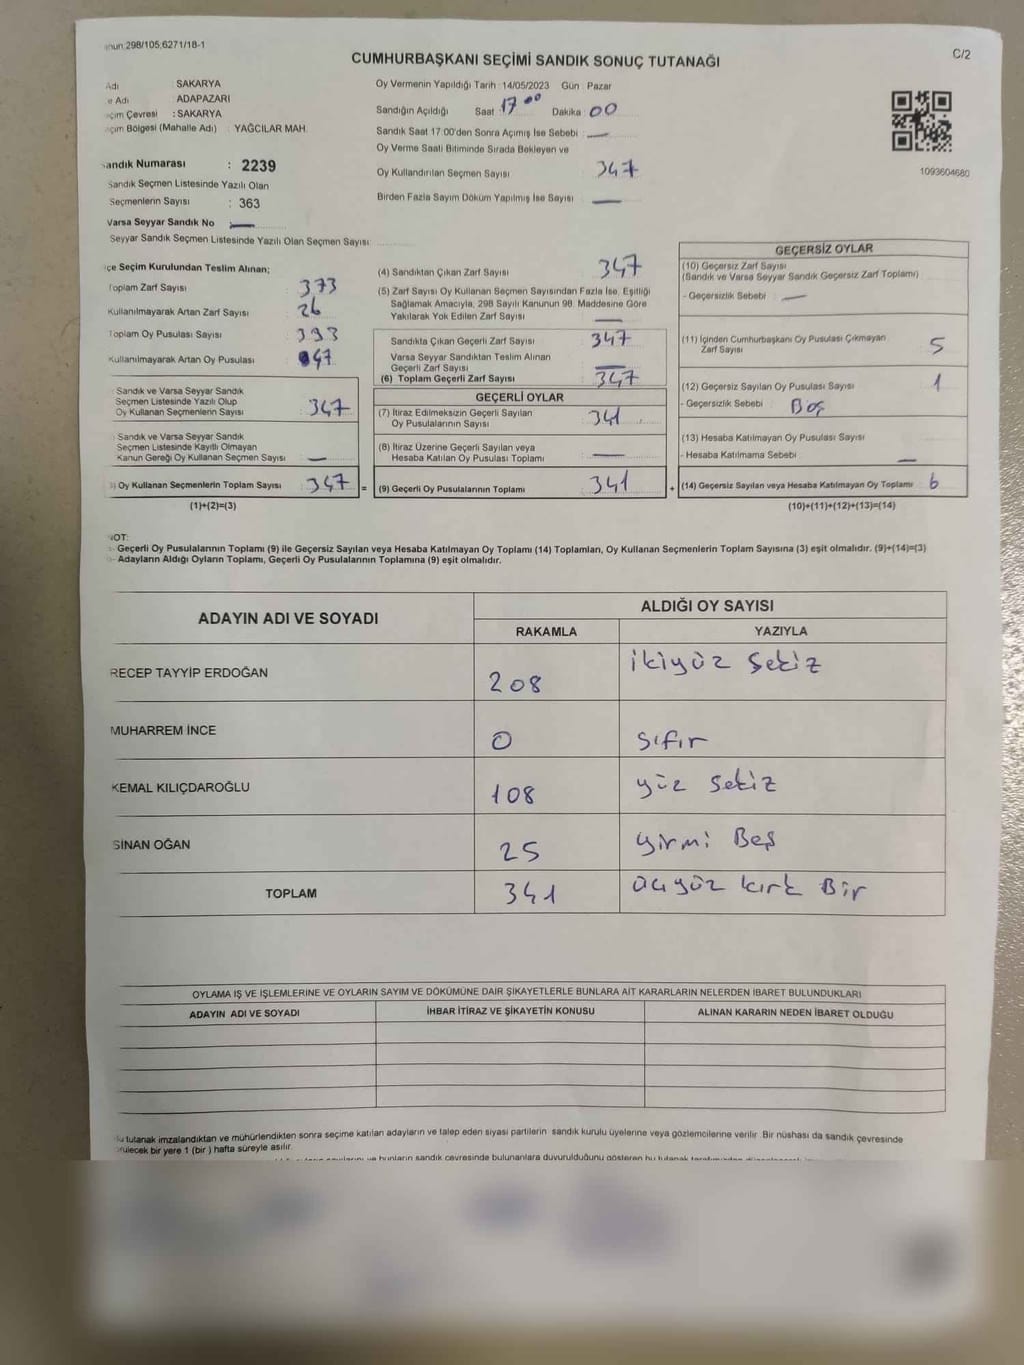 298/105,6271/18-1
CUMHURBAŞKANI SEÇİMİ SANDIK SONUÇ TUTANAĞI
C/2
Adı : SAKARYA
Adı : ADAPAZARI
Çevresi : SAKARYA
Bölgesi (Mahalle Adı) : YAĞCILAR MAH.
Sandık Numarası : 2239
Sandık Seçmen Listesinde Yazılı Olan
Seçmenlerin Sayısı : 363
Varsa Seyyar Sandık No : —
Seyyar Sandık Seçmen Listesinde Yazılı Olan Seçmen Sayısı
Oy Vermenin Yapıldığı Tarih : 14/05/2023 Gün : Pazar
Sandığın Açıldığı Saat : 17 00 Dakika : 00
Sandık Saat 17:00'den Sonra Açımış İse Sebebi : —
Oy Verme Saati Bitiminde Sırada Bekleyen ve
Oy Kullandırılan Seçmen Sayısı 347
Birden Fazla Sayım Döküm Yapılmış İse Sayısı —
1093604680
Seçim Kurulundan Teslim Alınan;
Toplam Zarf Sayısı 373
Kullanılmayarak Artan Zarf Sayısı 26
Toplam Oy Pusulası Sayısı 393
Kullanılmayarak Artan Oy Pusulası 47
Sandık ve Varsa Seyyar Sandık
Seçmen Listesinde Yazılı Olup
Oy Kullanan Seçmenlerin Sayısı 347
Sandık ve Varsa Seyyar Sandık
Seçmen Listesinde Kayıtlı Olmayan
Kanun Gereği Oy Kullanan Seçmen Sayısı —
Oy Kullanan Seçmenlerin Toplam Sayısı 347 =
(1)+(2)=(3)
(4) Sandıktan Çıkan Zarf Sayısı 347
(5) Zarf Sayısı Oy Kullanan Seçmen Sayısından Fazla İse, Eşitliği
Sağlamak Amacıyla, 298 Sayılı Kanunun 98. Maddesine Göre
Yakılarak Yok Edilen Zarf Sayısı —
Sandıkta Çıkan Geçerli Zarf Sayısı 347
Varsa Seyyar Sandıktan Teslim Alınan
Geçerli Zarf Sayısı —
(6) Toplam Geçerli Zarf Sayısı 347
GEÇERLİ OYLAR
(7) İtiraz Edilmeksizin Geçerli Sayılan
Oy Pusulalarının Sayısı 341
(8) İtiraz Üzerine Geçerli Sayılan veya
Hesaba Katılan Oy Pusulası Toplamı —
(9) Geçerli Oy Pusulalarının Toplamı 341 +
GEÇERSİZ OYLAR
(10) Geçersiz Zarf Sayısı
(Sandık ve Varsa Seyyar Sandık Geçersiz Zarf Toplamı)
- Geçersizlik Sebebi : —
(11) İçinden Cumhurbaşkanı Oy Pusulası Çıkmayan
Zarf Sayısı 5
(12) Geçersiz Sayılan Oy Pusulası Sayısı 1
- Geçersizlik Sebebi : Boş
(13) Hesaba Katılmayan Oy Pusulası Sayısı
- Hesaba Katılmama Sebebi : —
(14) Geçersiz Sayılan veya Hesaba Katılmayan Oy Toplamı 6
(10)+(11)+(12)+(13)=(14)
NOT:
- Geçerli Oy Pusulalarının Toplamı (9) ile Geçersiz Sayılan veya Hesaba Katılmayan Oy Toplamı (14) Toplamları, Oy Kullanan Seçmenlerin Toplam Sayısına (3) eşit olmalıdır. (9)+(14)=(3)
- Adayların Aldığı Oyların Toplamı, Geçerli Oy Pusulalarının Toplamına (9) eşit olmalıdır.
ADAYIN ADI VE SOYADI
ALDIĞI OY SAYISI
RAKAMLA YAZIYLA
RECEP TAYYİP ERDOĞAN 208 ikiyüz sekiz
MUHARREM İNCE 0 sıfır
KEMAL KILIÇDAROĞLU 108 yüz sekiz
SİNAN OĞAN 25 yirmi Beş
TOPLAM 341 üçyüz kırk Bir
OYLAMA İŞ VE İŞLEMLERİNE VE OYLARIN SAYIM VE DÖKÜMÜNE DAİR ŞİKAYETLERLE BUNLARA AİT KARARLARIN NELERDEN İBARET BULUNDUKLARI
ADAYIN ADI VE SOYADI İHBAR İTİRAZ VE ŞİKAYETİN KONUSU ALINAN KARARIN NEDEN İBARET OLDUĞU
Bu tutanak imzalandıktan ve mühürlendikten sonra seçime katılan adayların ve talep eden siyasi partilerin sandık kurulu üyelerine veya gözlemcilerine verilir. Bir nüshası da sandık çevresinde
bir yere 1 (bir) hafta süreyle asılır.